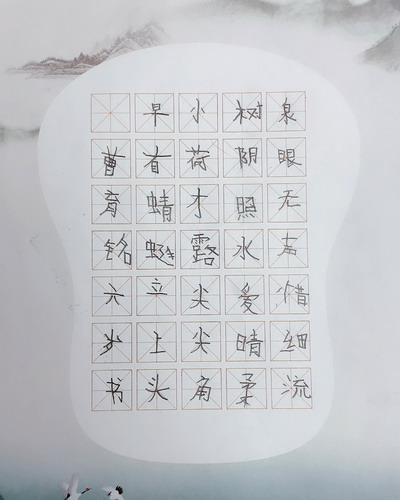 泉眼无声惜细流
树阴照水爱晴柔
小荷才露尖尖角
早有蜻蜓立上头
曹育铭六岁书